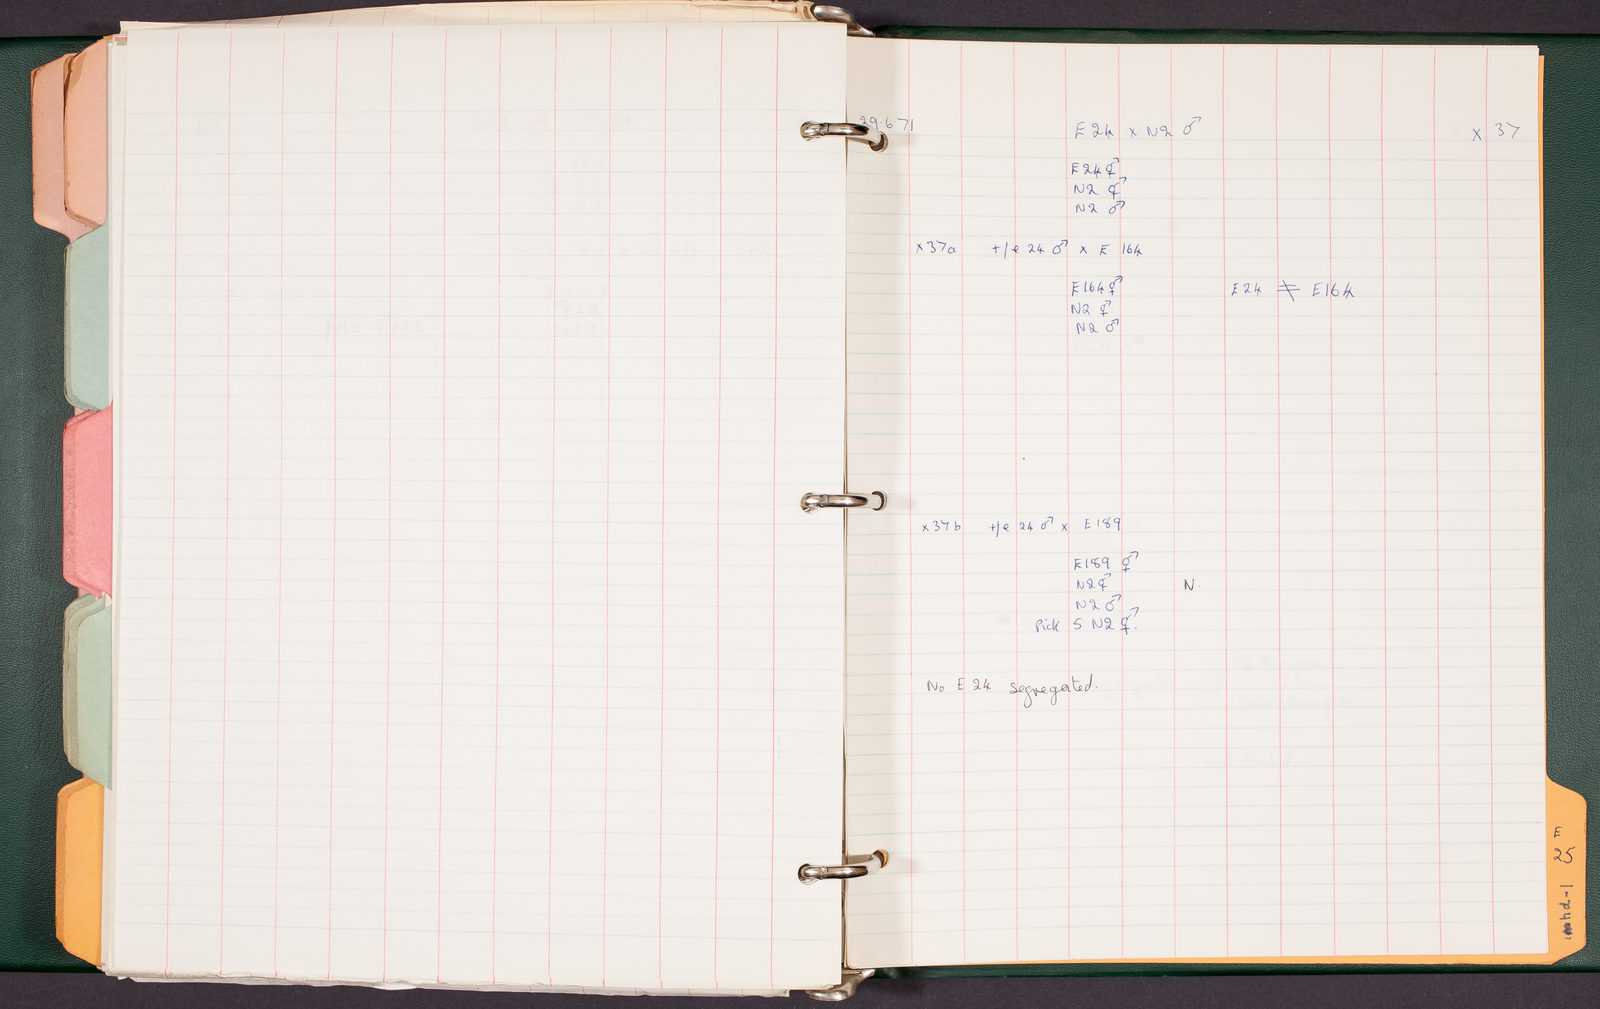 29.6.71 E24 x N2 ♂ x 37
E24 ⚥
N2 ⚥
N2 ♂
x37a +/e 24 ♂ x E 164
E164 ⚥ E24 ≠ E164
N2 ⚥
N2 ♂
x37b +/e 24 ♂ x E189
E189 ⚥
N2 ⚥ N.
N2 ♂
Pick 5 N2 ⚥.
No E24 segregated.
E
25